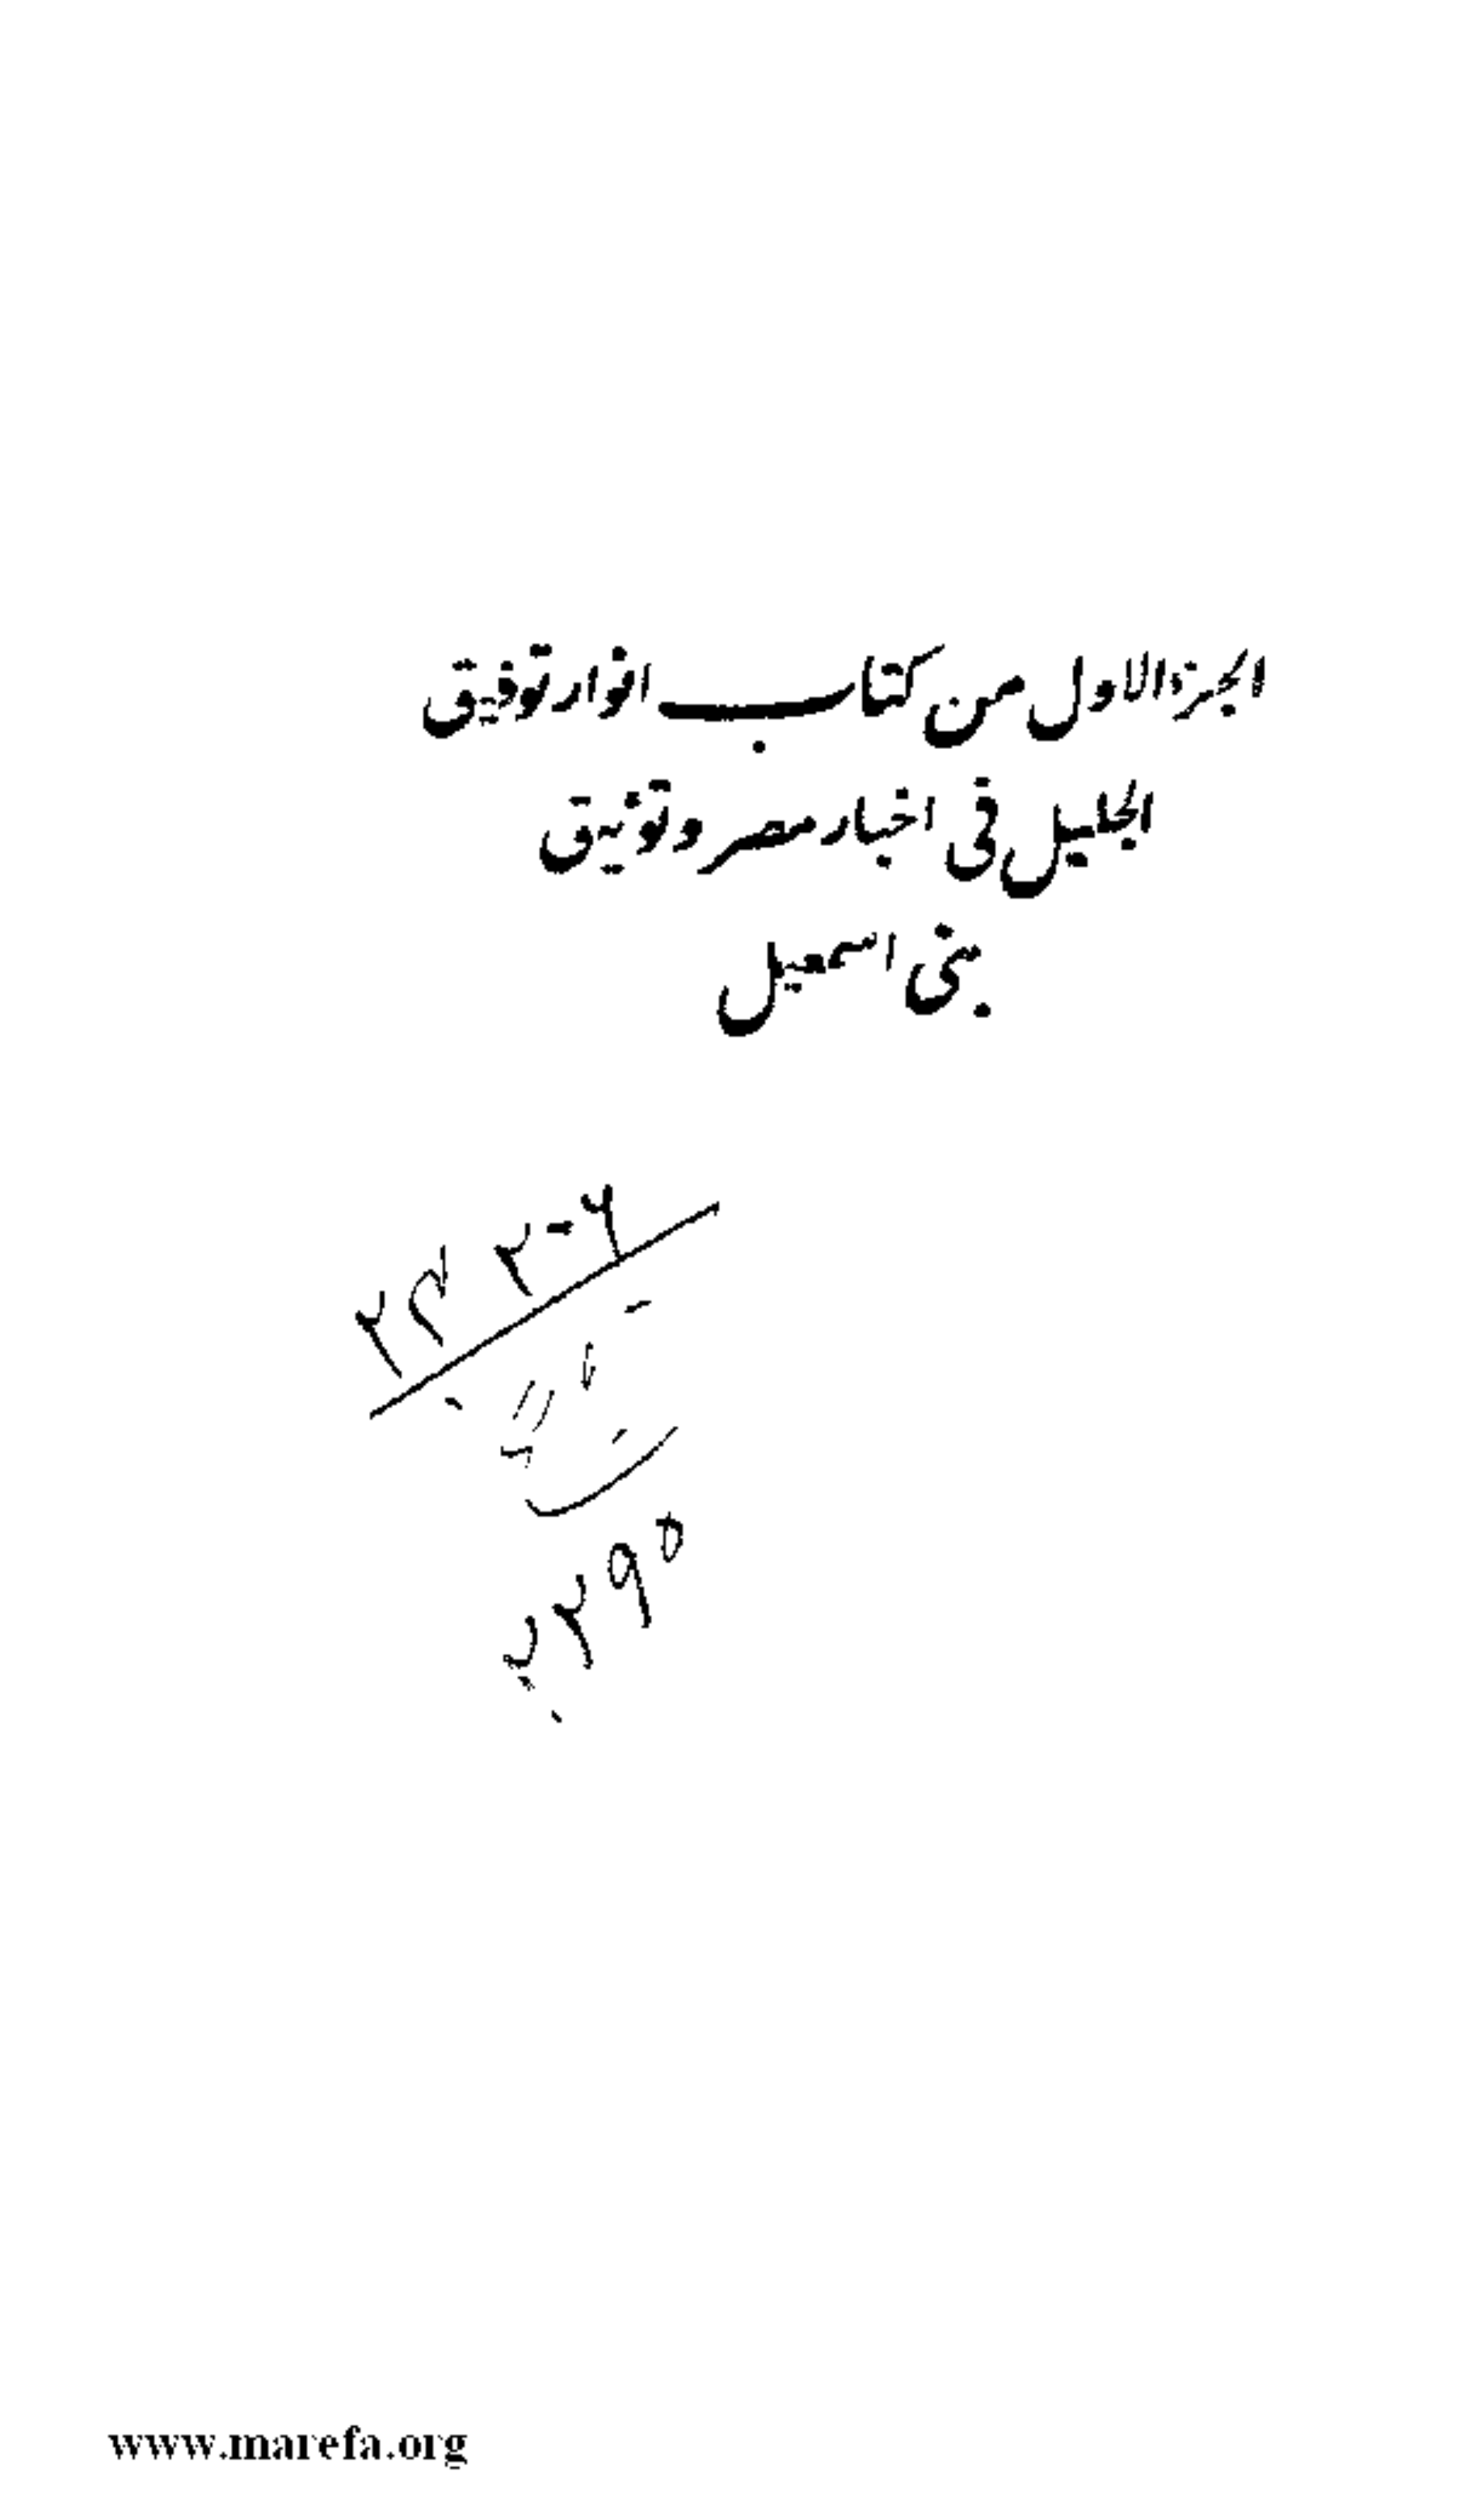 الجزء الاول من كتاب انوار توفيق
الجليل فى اخبار مصر وتوثيق
بنى اسمعيل
٢٢٩٥
www.marefa.org